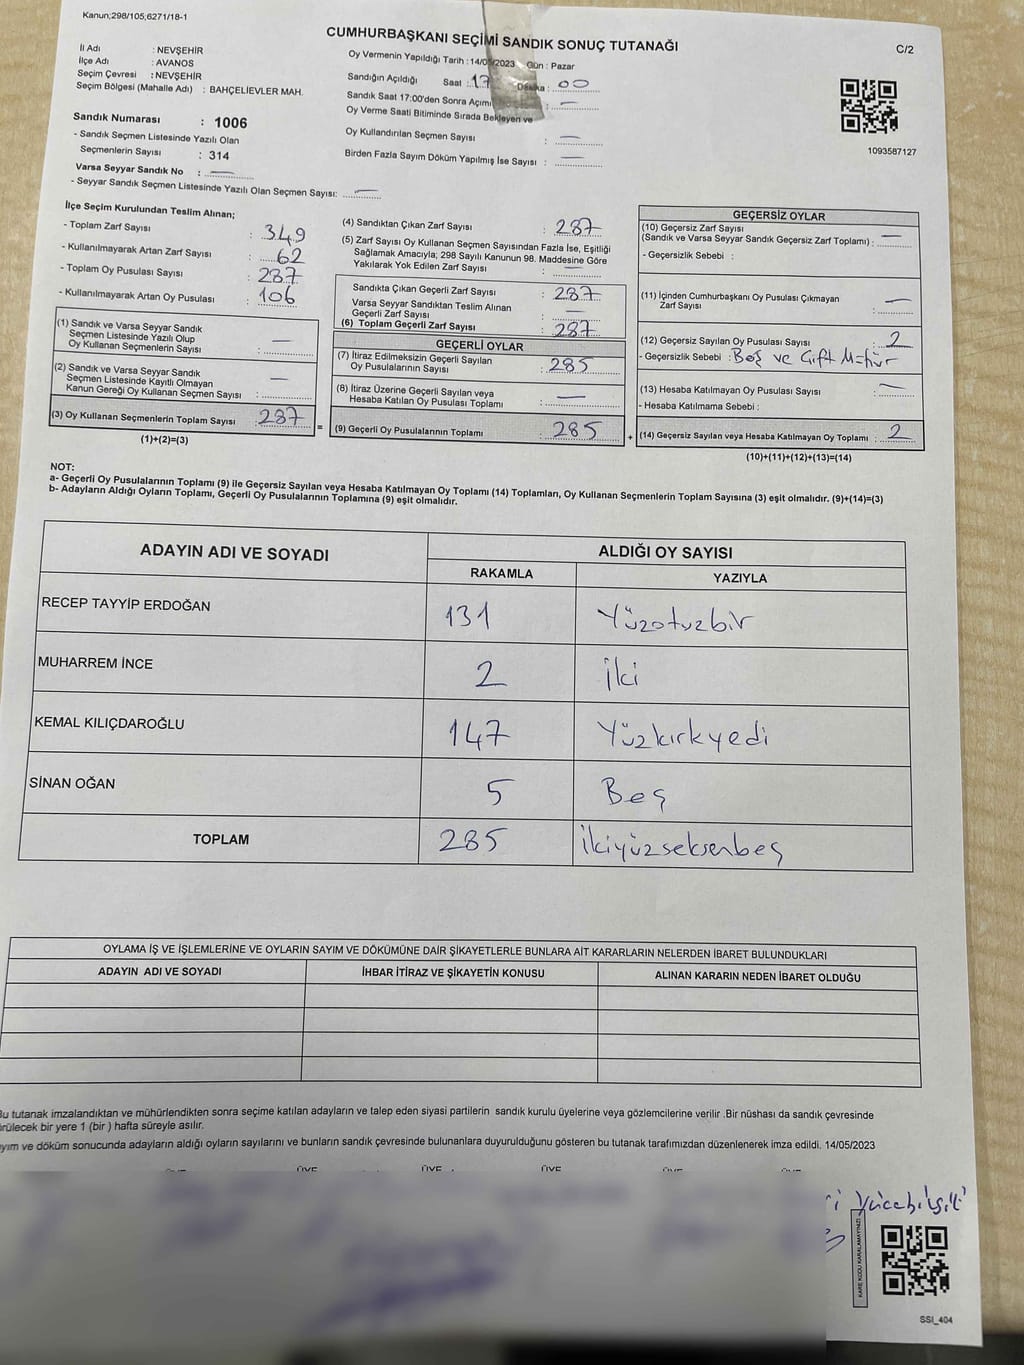 Kanun;298/105;6271/18-1
CUMHURBAŞKANI SEÇİMİ SANDIK SONUÇ TUTANAĞI
C/2
İl Adı : NEVŞEHİR
İlçe Adı : AVANOS
Seçim Çevresi : NEVŞEHİR
Seçim Bölgesi (Mahalle Adı) : BAHÇELİEVLER MAH.
Oy Vermenin Yapıldığı Tarih :14/05/2023 Gün : Pazar
Sandığın Açıldığı Saat : 17 Dakika : 00
Sandık Saat 17:00'den Sonra Açılmı
Oy Verme Saati Bitiminde Sırada Bekleyen ve
Oy Kullandırılan Seçmen Sayısı : —
Birden Fazla Sayım Döküm Yapılmış İse Sayısı : —
1093587127
Sandık Numarası : 1006
- Sandık Seçmen Listesinde Yazılı Olan
Seçmenlerin Sayısı : 314
Varsa Seyyar Sandık No : —
- Seyyar Sandık Seçmen Listesinde Yazılı Olan Seçmen Sayısı: —
İlçe Seçim Kurulundan Teslim Alınan;
- Toplam Zarf Sayısı : 349
- Kullanılmayarak Artan Zarf Sayısı : 62
- Toplam Oy Pusulası Sayısı : 287
- Kullanılmayarak Artan Oy Pusulası : 106
(1) Sandık ve Varsa Seyyar Sandık
Seçmen Listesinde Yazılı Olup
Oy Kullanan Seçmenlerin Sayısı : —
(2) Sandık ve Varsa Seyyar Sandık
Seçmen Listesinde Kayıtlı Olmayan
Kanun Gereği Oy Kullanan Seçmen Sayısı : —
(3) Oy Kullanan Seçmenlerin Toplam Sayısı : 287
(1)+(2)=(3)
(4) Sandıktan Çıkan Zarf Sayısı : 287
(5) Zarf Sayısı Oy Kullanan Seçmen Sayısından Fazla İse, Eşitliği
Sağlamak Amacıyla; 298 Sayılı Kanunun 98. Maddesine Göre
Yakılarak Yok Edilen Zarf Sayısı : —
Sandıkta Çıkan Geçerli Zarf Sayısı : 287
Varsa Seyyar Sandıktan Teslim Alınan
Geçerli Zarf Sayısı : —
(6) Toplam Geçerli Zarf Sayısı : 287
GEÇERLİ OYLAR
(7) İtiraz Edilmeksizin Geçerli Sayılan
Oy Pusulalarının Sayısı : 285
(8) İtiraz Üzerine Geçerli Sayılan veya
Hesaba Katılan Oy Pusulası Toplamı : —
= (9) Geçerli Oy Pusulalarının Toplamı : 285
GEÇERSİZ OYLAR
(10) Geçersiz Zarf Sayısı
(Sandık ve Varsa Seyyar Sandık Geçersiz Zarf Toplamı) : —
- Geçersizlik Sebebi :
(11) İçinden Cumhurbaşkanı Oy Pusulası Çıkmayan
Zarf Sayısı : —
(12) Geçersiz Sayılan Oy Pusulası Sayısı : 2
- Geçersizlik Sebebi : Boş ve Çift Mühür
(13) Hesaba Katılmayan Oy Pusulası Sayısı : —
- Hesaba Katılmama Sebebi :
+ (14) Geçersiz Sayılan veya Hesaba Katılmayan Oy Toplamı : 2
(10)+(11)+(12)+(13)=(14)
NOT:
a- Geçerli Oy Pusulalarının Toplamı (9) ile Geçersiz Sayılan veya Hesaba Katılmayan Oy Toplamı (14) Toplamları, Oy Kullanan Seçmenlerin Toplam Sayısına (3) eşit olmalıdır. (9)+(14)=(3)
b- Adayların Aldığı Oyların Toplamı, Geçerli Oy Pusulalarının Toplamına (9) eşit olmalıdır.
ADAYIN ADI VE SOYADI ALDIĞI OY SAYISI
RAKAMLA YAZIYLA
RECEP TAYYİP ERDOĞAN 131 Yüzotuzbir
MUHARREM İNCE 2 İki
KEMAL KILIÇDAROĞLU 147 Yüzkırkyedi
SİNAN OĞAN 5 Beş
TOPLAM 285 İkiyüzseksenbeş
OYLAMA İŞ VE İŞLEMLERİNE VE OYLARIN SAYIM VE DÖKÜMÜNE DAİR ŞİKAYETLERLE BUNLARA AİT KARARLARIN NELERDEN İBARET BULUNDUKLARI
ADAYIN ADI VE SOYADI İHBAR İTİRAZ VE ŞİKAYETİN KONUSU ALINAN KARARIN NEDEN İBARET OLDUĞU
Bu tutanak imzalandıktan ve mühürlendikten sonra seçime katılan adayların ve talep eden siyasi partilerin sandık kurulu üyelerine veya gözlemcilerine verilir .Bir nüshası da sandık çevresinde
örülecek bir yere 1 (bir ) hafta süreyle asılır.
yım ve döküm sonucunda adayların aldığı oyların sayılarını ve bunların sandık çevresinde bulunanlara duyurulduğunu gösteren bu tutanak tarafımızdan düzenlenerek imza edildi. 14/05/2023
ÜYE ÜYE ÜYE
KARE KODU KARALAMAYINIZ!
SSI_404